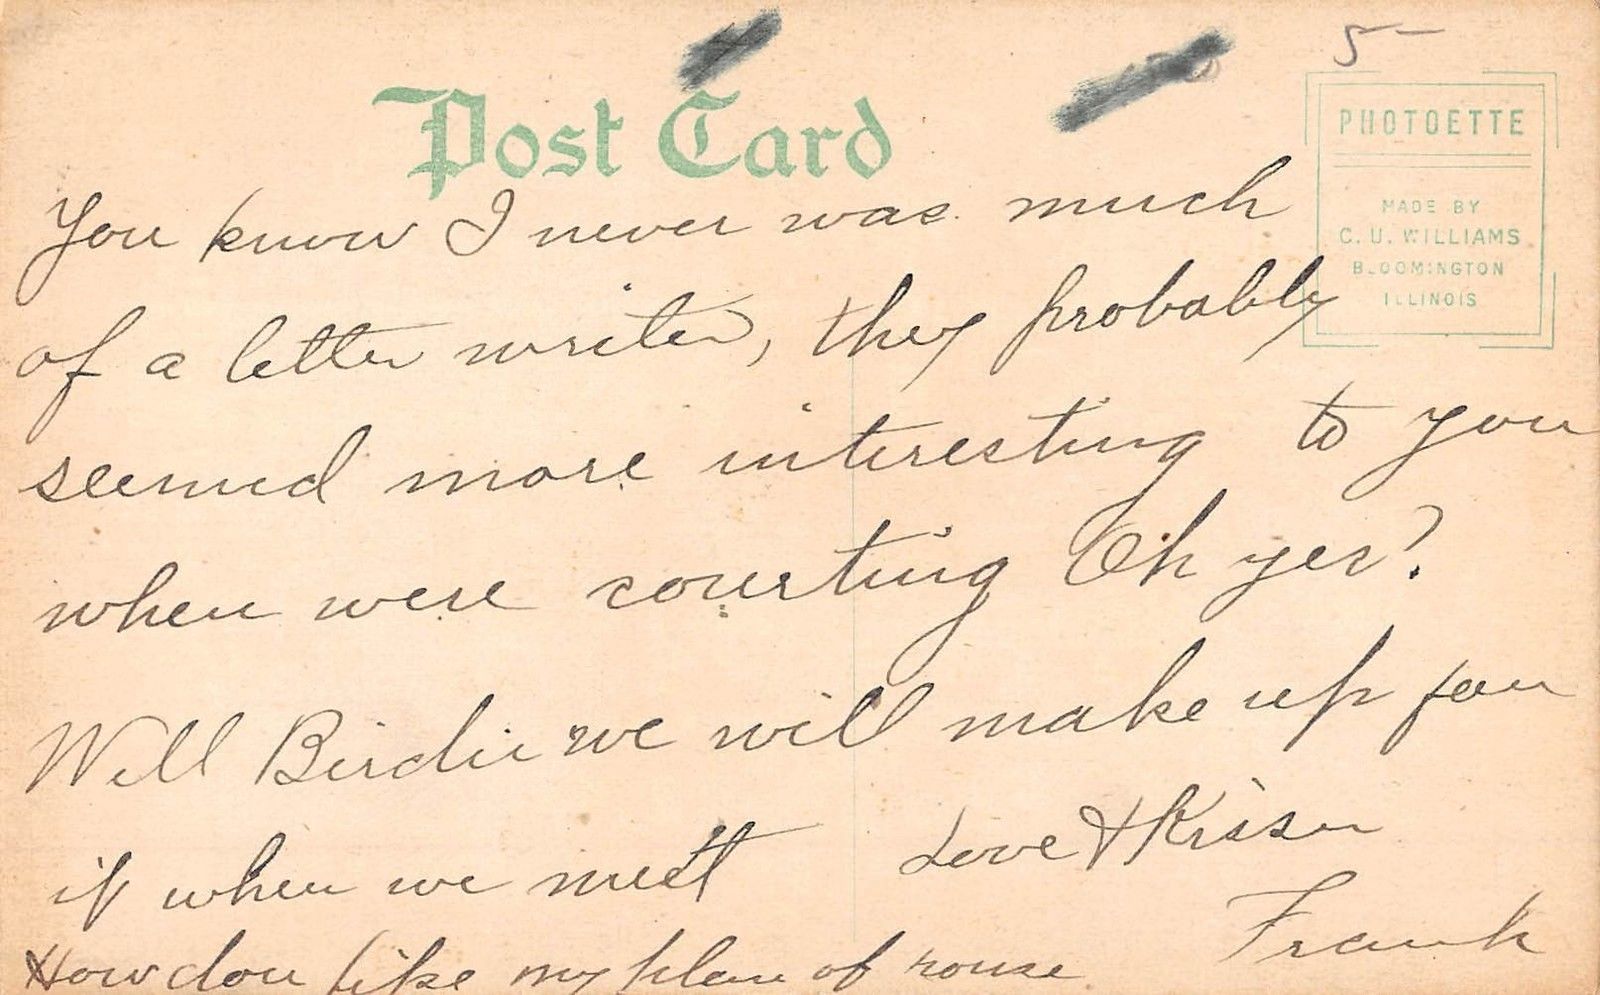 5-
Post Card
PHOTOETTE
MADE BY
C. U. WILLIAMS
BLOOMINGTON
ILLINOIS
You know I never was much
of a letter writer, they probably
seemed more interesting to you
when were courting Oh yes?
Well Birdie we will make up for
it when we meet
Love & Kisses
Frank
How dou like my plan of